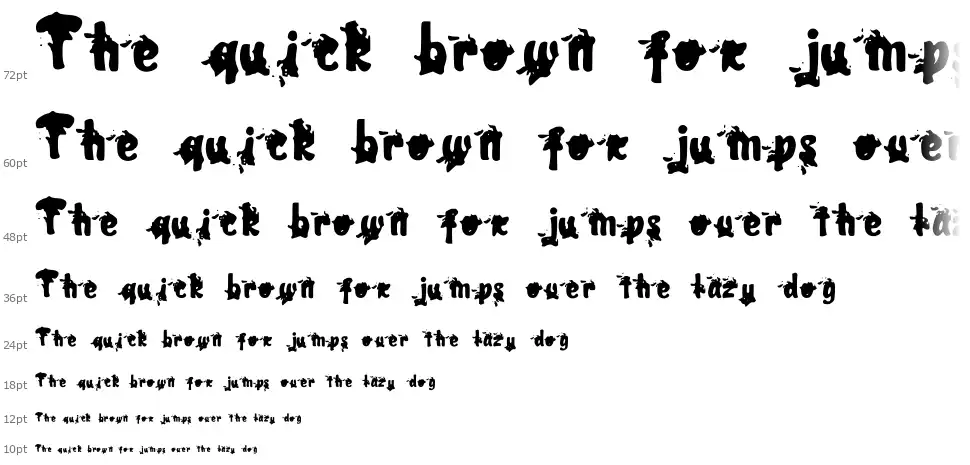 72pt The quick brown fox jumps
60pt The quick brown fox jumps over
48pt The quick brown fox jumps over the
36pt The quick brown fox jumps over the lazy dog
24pt The quick brown fox jumps over the lazy dog
18pt The quick brown fox jumps over the lazy dog
12pt The quick brown fox jumps over the lazy dog
10pt The quick brown fox jumps over the lazy dog